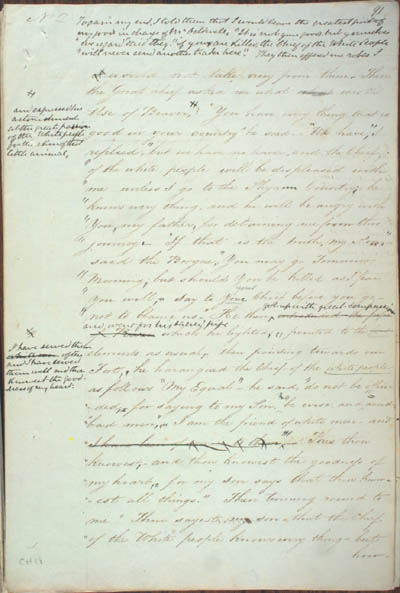 No 2
91
To gain my end, I told them that I would leave the greatest part of
my good in charge of Mr Caldwell's. "It is not your good, but yourselves
we regard" said they. "If you are killed the Chief of the White People
"will never send another trader here." They then offered me robes I
would not take any from them. Then
the Great chief asked me what was the
Use of Beaver,
"You have every thing that is
Good in your country" he said. "We have," I
replied, "but we have no
and the Chief
"of the white people will be displeased with
me unless I go to the
Country; he
"knows every thing, and he will be angry with
"You, my father, for detaining me from this
"journey." "If that is the truth, my Son"
said the Borgne, "You may go Tomorrow
Morning, but should you be killed as I fear
"you will, say to your Chief before you go
"not to blame us." He then
and
his
pipe
which he lighted, pointed to the
elements as usual, then pointing towards our
Fort, he harangued the Chief of the white people
as follows "My Equal" he said, "do not be offen-
ded, for saying to my Son, be wise and
had more, I am the friend of white men and
Thou
knowest, and thou knowest the goodness of
my heart, for my son says that thou know-
-est all things." Then turning round to
me "Thou sayest, my son, that the Chief
"of the White people knows every thing - but
how
and expressed his
astonishment
at the great passion
of the White people
for the skin of that
little animal,
I have served them
of them
and I have served
them well and thou
knowest the good-
ness of my heart.
CH 11